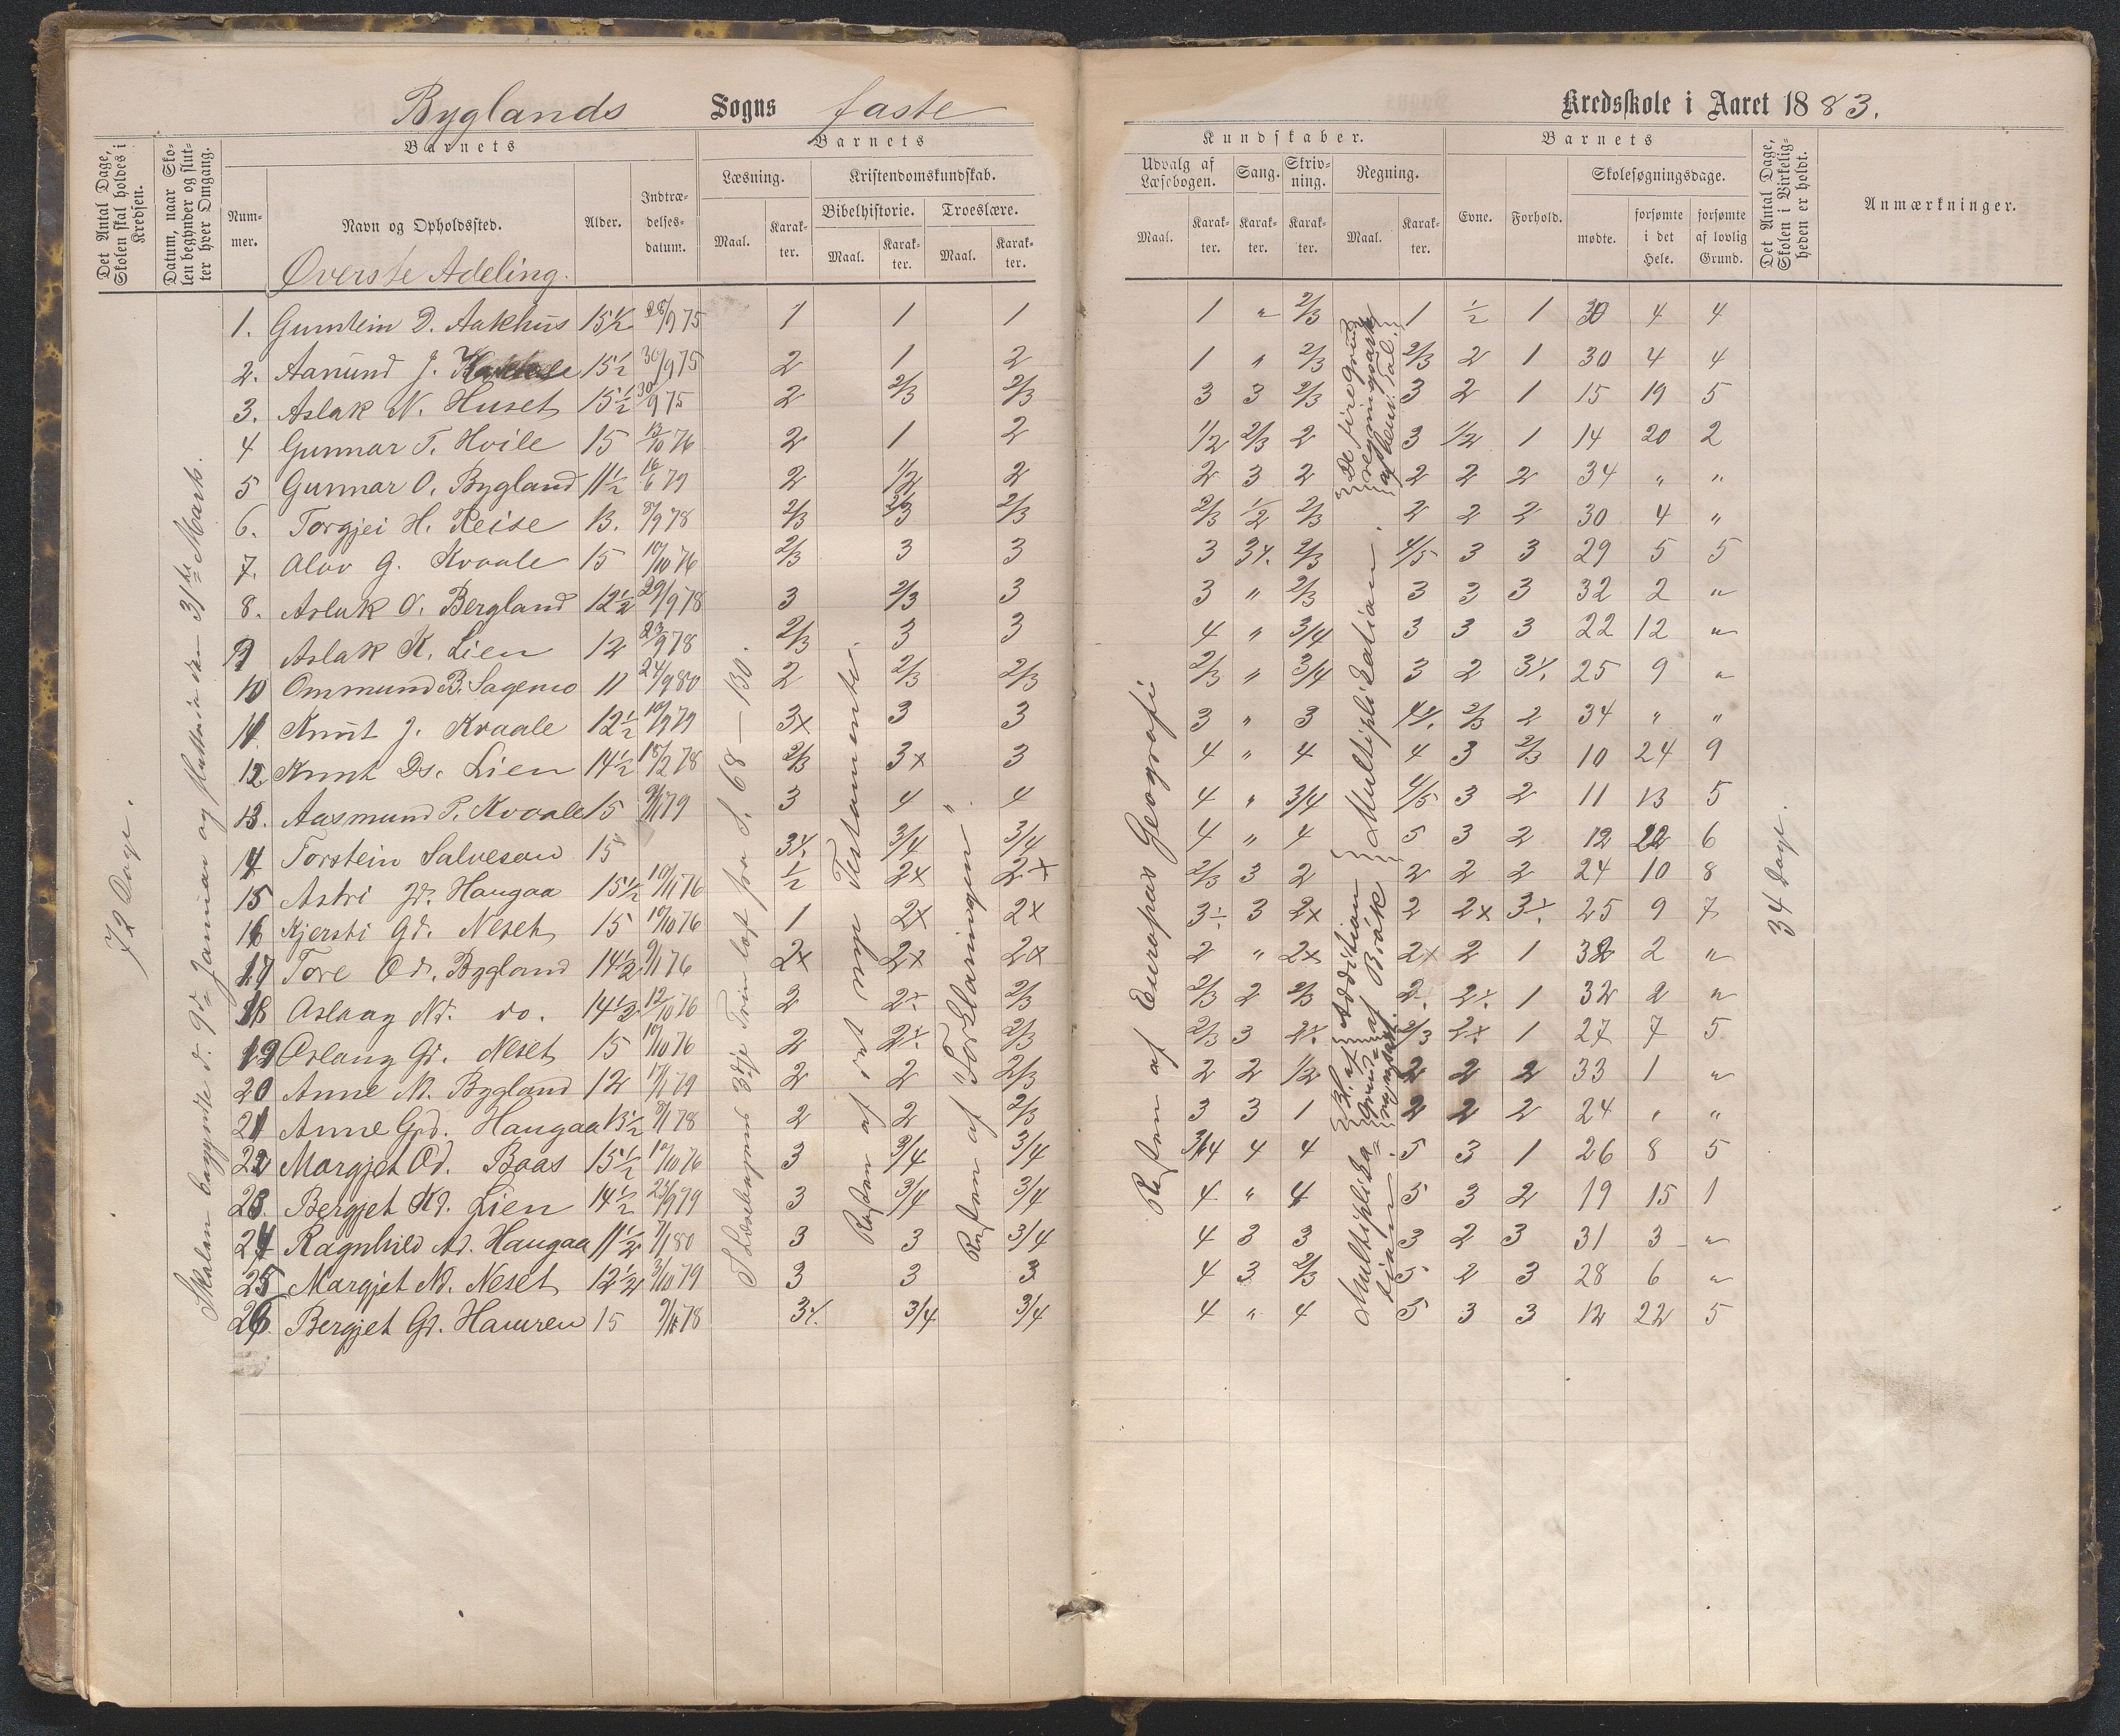 Byglands Sogns faste Kredsskole i Aaret 1883.
Det Antal Dage, Skolen skal holdes i Kredsen.
Datum, naar Skolen begynder og slutter hver Omgang.
Barnets
Nummer.
Navn og Opholdssted.
Alder.
Indtrædelsesdatum.
Barnets
Læsning.
Maal.
Karakter.
Kristendomskundskab.
Bibelhistorie.
Maal.
Karakter.
Troeslære.
Maal.
Karakter.
Kundskaber.
Udvalg af Læsebogen.
Maal.
Karakter.
Sang.
Karakter.
Skrivning.
Karakter.
Regning.
Maal.
Karakter.
Barnets
Evne.
Forhold.
Skolesøgningsdage.
mødte.
forsømte i det Hele.
forsømte af lovlig Grund.
Det Antal Dage, Skolen i Virkeligheden er holdt.
Anmærkninger.
Øverste Adeling.
72 Dage.
Skolen begyndte d. 9de Januar og sluttede den 31te Marts.
I Læsebogens 3dje Trin læst fra S. 68–130.
Resten af det nye Testamente.
Resten af "Forklaringen".
Resten af Europas Geografi
De fire Regningsarter
Multiplikation.
Addition af Brøk
Multiplikation
34 Dage.
1. Gunstein D. Aakhus 15½ 28/9 75 1 1 1 1 " 2/3 1 ½ 1 30 4 4
2. Aanund J. 15½ 30/9 75 2 1 2 1 " 2/3 2/3 2 1 30 4 4
3. Aslak N. Huset 15½ 30/9 75 2 2/3 2/3 3 3 2/3 3 2 1 15 19 5
4 Gunnar T. Hvile 15 13/10 76 2 1 2 1/2 2/3 2 3 1/2 1 14 20 2
5 Gunnar O. Bygland 11½ 16/6 79 2 1/2 2 2 3 2 2 2 2 34 " "
6. Torgjei H. Reise 13. 9/9 78 2/3 2/3 2/3 2/3 1/2 2/3 2 2 2 30 4 "
7. Olav G. Kvaale 15 10/10 76 2/3 3 3 3 3 2/3 4/5 3 3 29 5 5
8. Aslak O. Bergland 12½ 29/9 78 3 2/3 3 3 " 2/3 3 3 3 32 2 "
9 Aslak K. Lien 12 23/9 78 2/3 3 3 4 " 3/4 3 3 3 22 12 "
10 Ommund B. Sagemo 11 24/9 80 2 2/3 2/3 2/3 " 3/4 3 2 3 25 9 "
11 Knut J. Kvaale 12½ 10/9 79 3x 3 3 3 " 3 4 2/3 2 34 " "
12. Knut Ds. Lien 14½ 18/2 78 2/3 3x 3 4 " 4 4 3 2/3 10 24 9
13. Aasmund P. Kvaale 15 9/11 79 3 4 4 4 " 3/4 4/5 3 2 11 13 5
14 Torstein Salvesen 15 3 3/4 3/4 4 " 4 5 3 2 12 22 6
15 Astri Haugaa 15½ 10/11 76 1/2 2x 2x 2/3 3 2 2 2 2 24 10 8
16 Kjersti Gd. Neset 15 10/10 76 1 2x 2x 3 3 2x 2 2x 3 25 9 7
17 Tore Od. Bygland 14½ 9/11 76 2x 2x 2x 2 " 2x 2x 2 1 32 2 "
18 Aslaug Nd. do. 14½ 12/10 76 2 2 2/3 2/3 2 2/3 2 2 1 32 2 "
19 Oslaug Gd. Neset 15 10/10 76 2 2 2/3 2/3 3 2 2/3 2 1 27 7 5
20 Anne N. Bygland 12 17/1 79 2 2 2/3 2 2 1/2 2 2 2 33 1 "
21 Anne Grd. Haugaa 13½ 9/1 78 2 2 2/3 3 3 1 2 2 2 24 " "
22 Margjet Od. Baas 15½ 10/10 76 3 3/4 3/4 3/4 4 4 5 3 1 26 8 5
23. Bergjet Kd. Lien 14½ 23/9 79 3 3/4 3/4 4 " 4 5 3 2 19 15 1
24 Ragnhild Ad. Haugaa 11½ 9/1 80 3 3 3/4 4 3 3 3 2 3 31 3 "
25 Margjet Nd. Neset 12½ 3/10 79 3 3 3 4 3 2/3 5 2 3 28 6 "
26. Bergjet Gd. Hamren 15 9/11 78 3 3/4 3/4 4 " 4 5 3 3 12 22 5